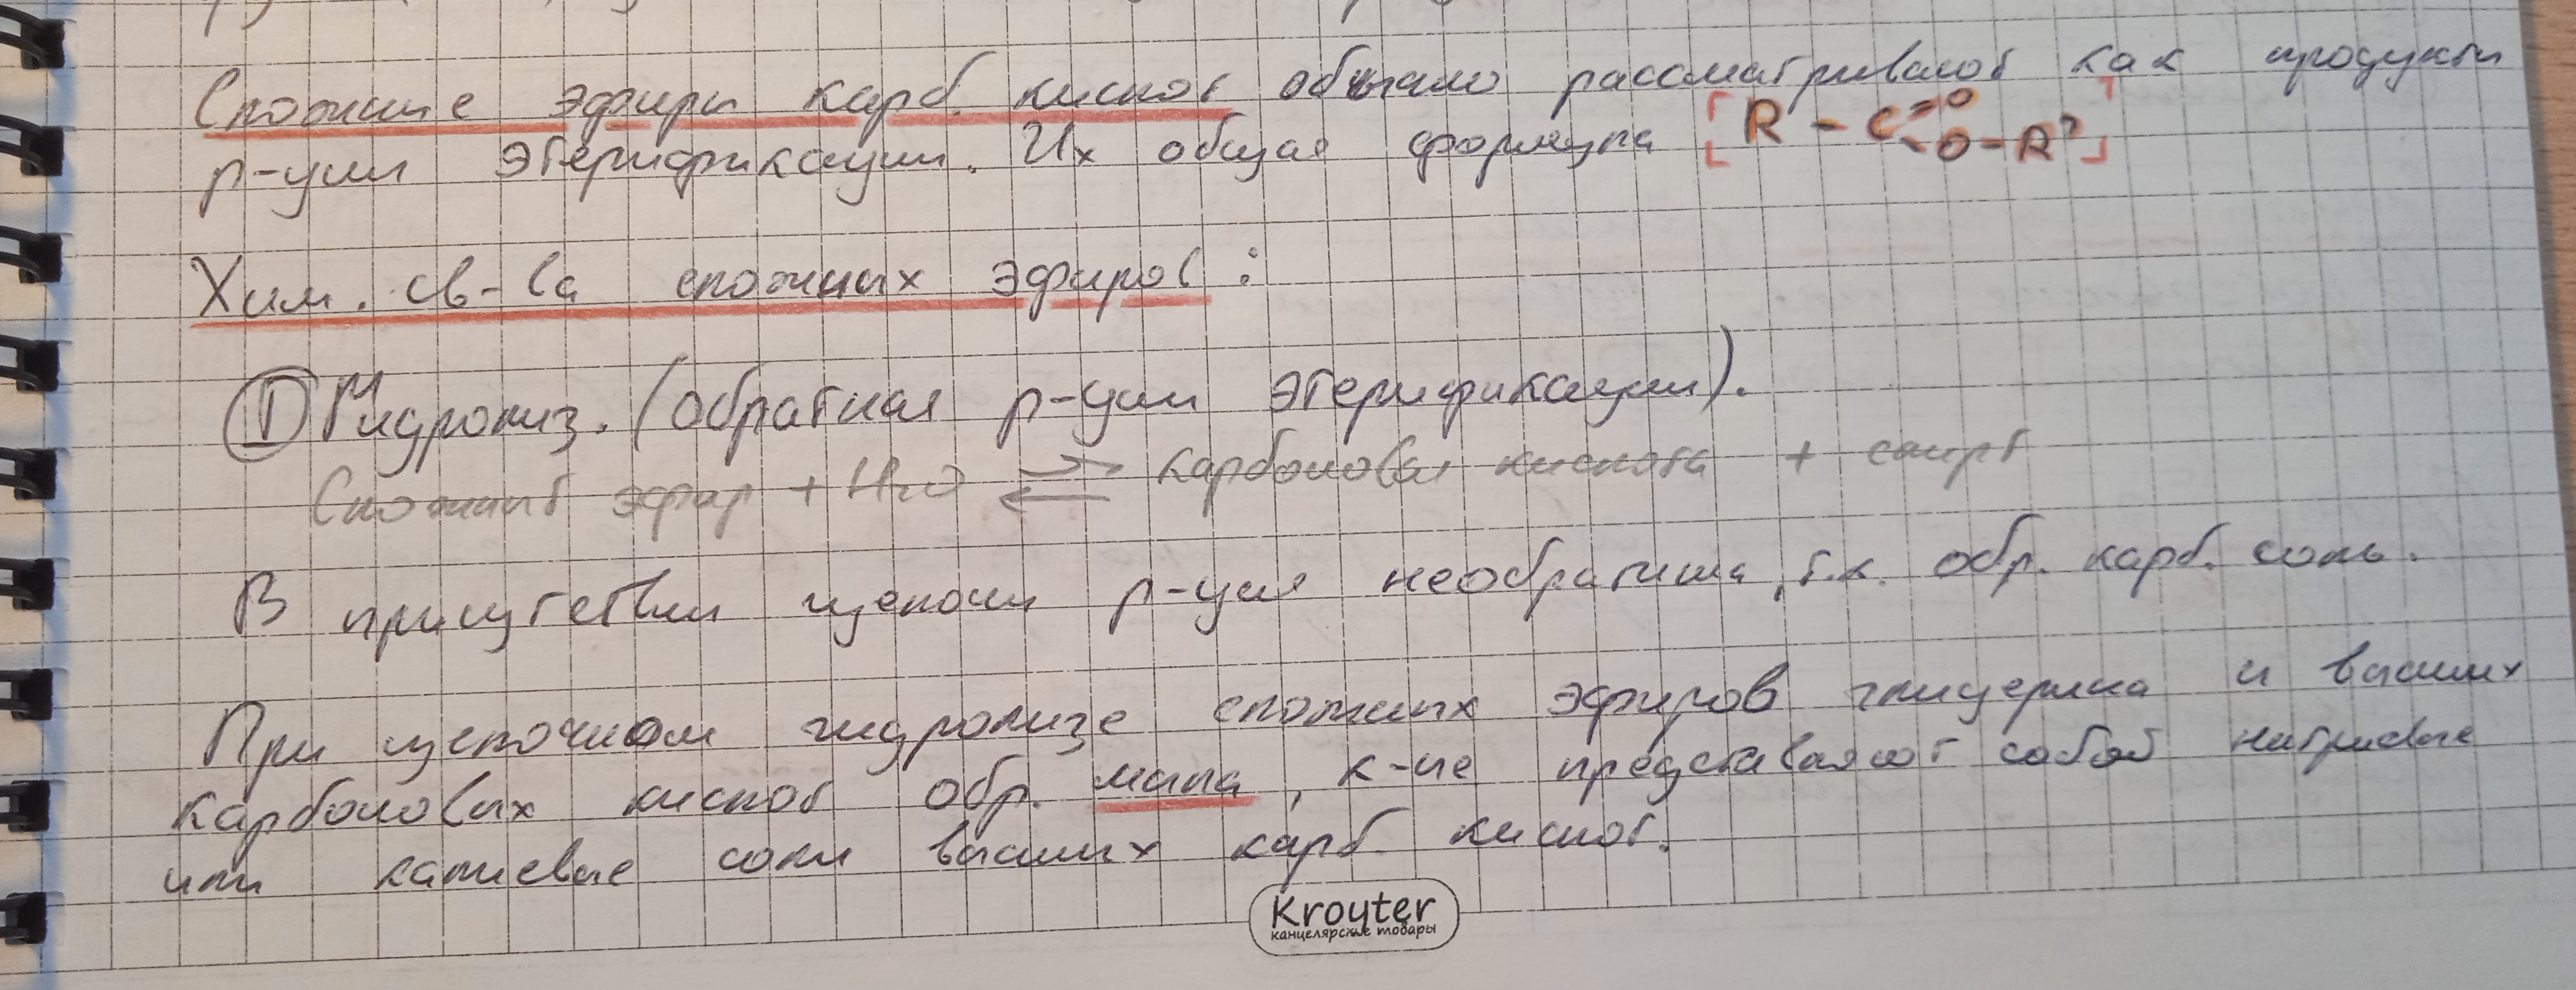 Сложные эфиры карб. кислот обычно рассматривают как продукты
р-ции этерификации. Их общая формула [R - C =O -O-R']
Хим. св-ва сложных эфиров:
I Гидролиз. (обратная р-ции этерификации).
Сложный эфир + H₂O ⇄ карбоновая кислота + спирт
В присутствии щелочи р-ция необратима, т.к. обр. карб. соль.
При щелочном гидролизе сложных эфиров глицерина и высших
карбоновых кислот обр. мыла, к-ые представляют собой натриевые
или калиевые соли высших карб. кислот.
Kroyter
канцелярские товары